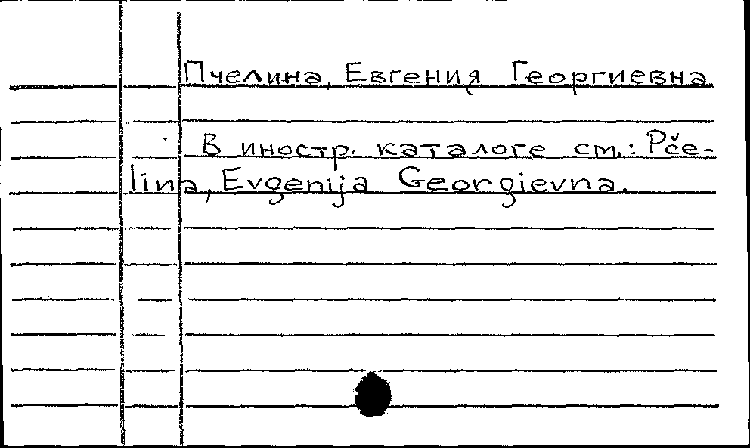 Пчелина, Евгения Георгиевна
В иностр. каталоге см.: Pče-
lina, Evgenija Georgievna.